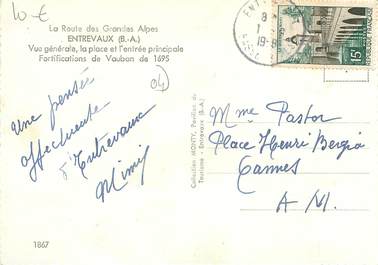 10 €
La Route des Grandes Alpes
ENTREVAUX (B.-A.)
Vue générale, la place et l'entrée principale
Fortifications de Vauban de 1695
04
Une pensée
affectueuse
d'Entrevaux
Mimi
Collection MONTY, Pavillon du
Tourisme - Entrevaux (B.-A.)
15F
Mme Pastor
Place Henri Bergia
Cannes
A M.
1867